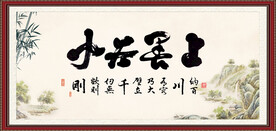 上善若水
納百川有容乃大壁立千仞無欲則剛